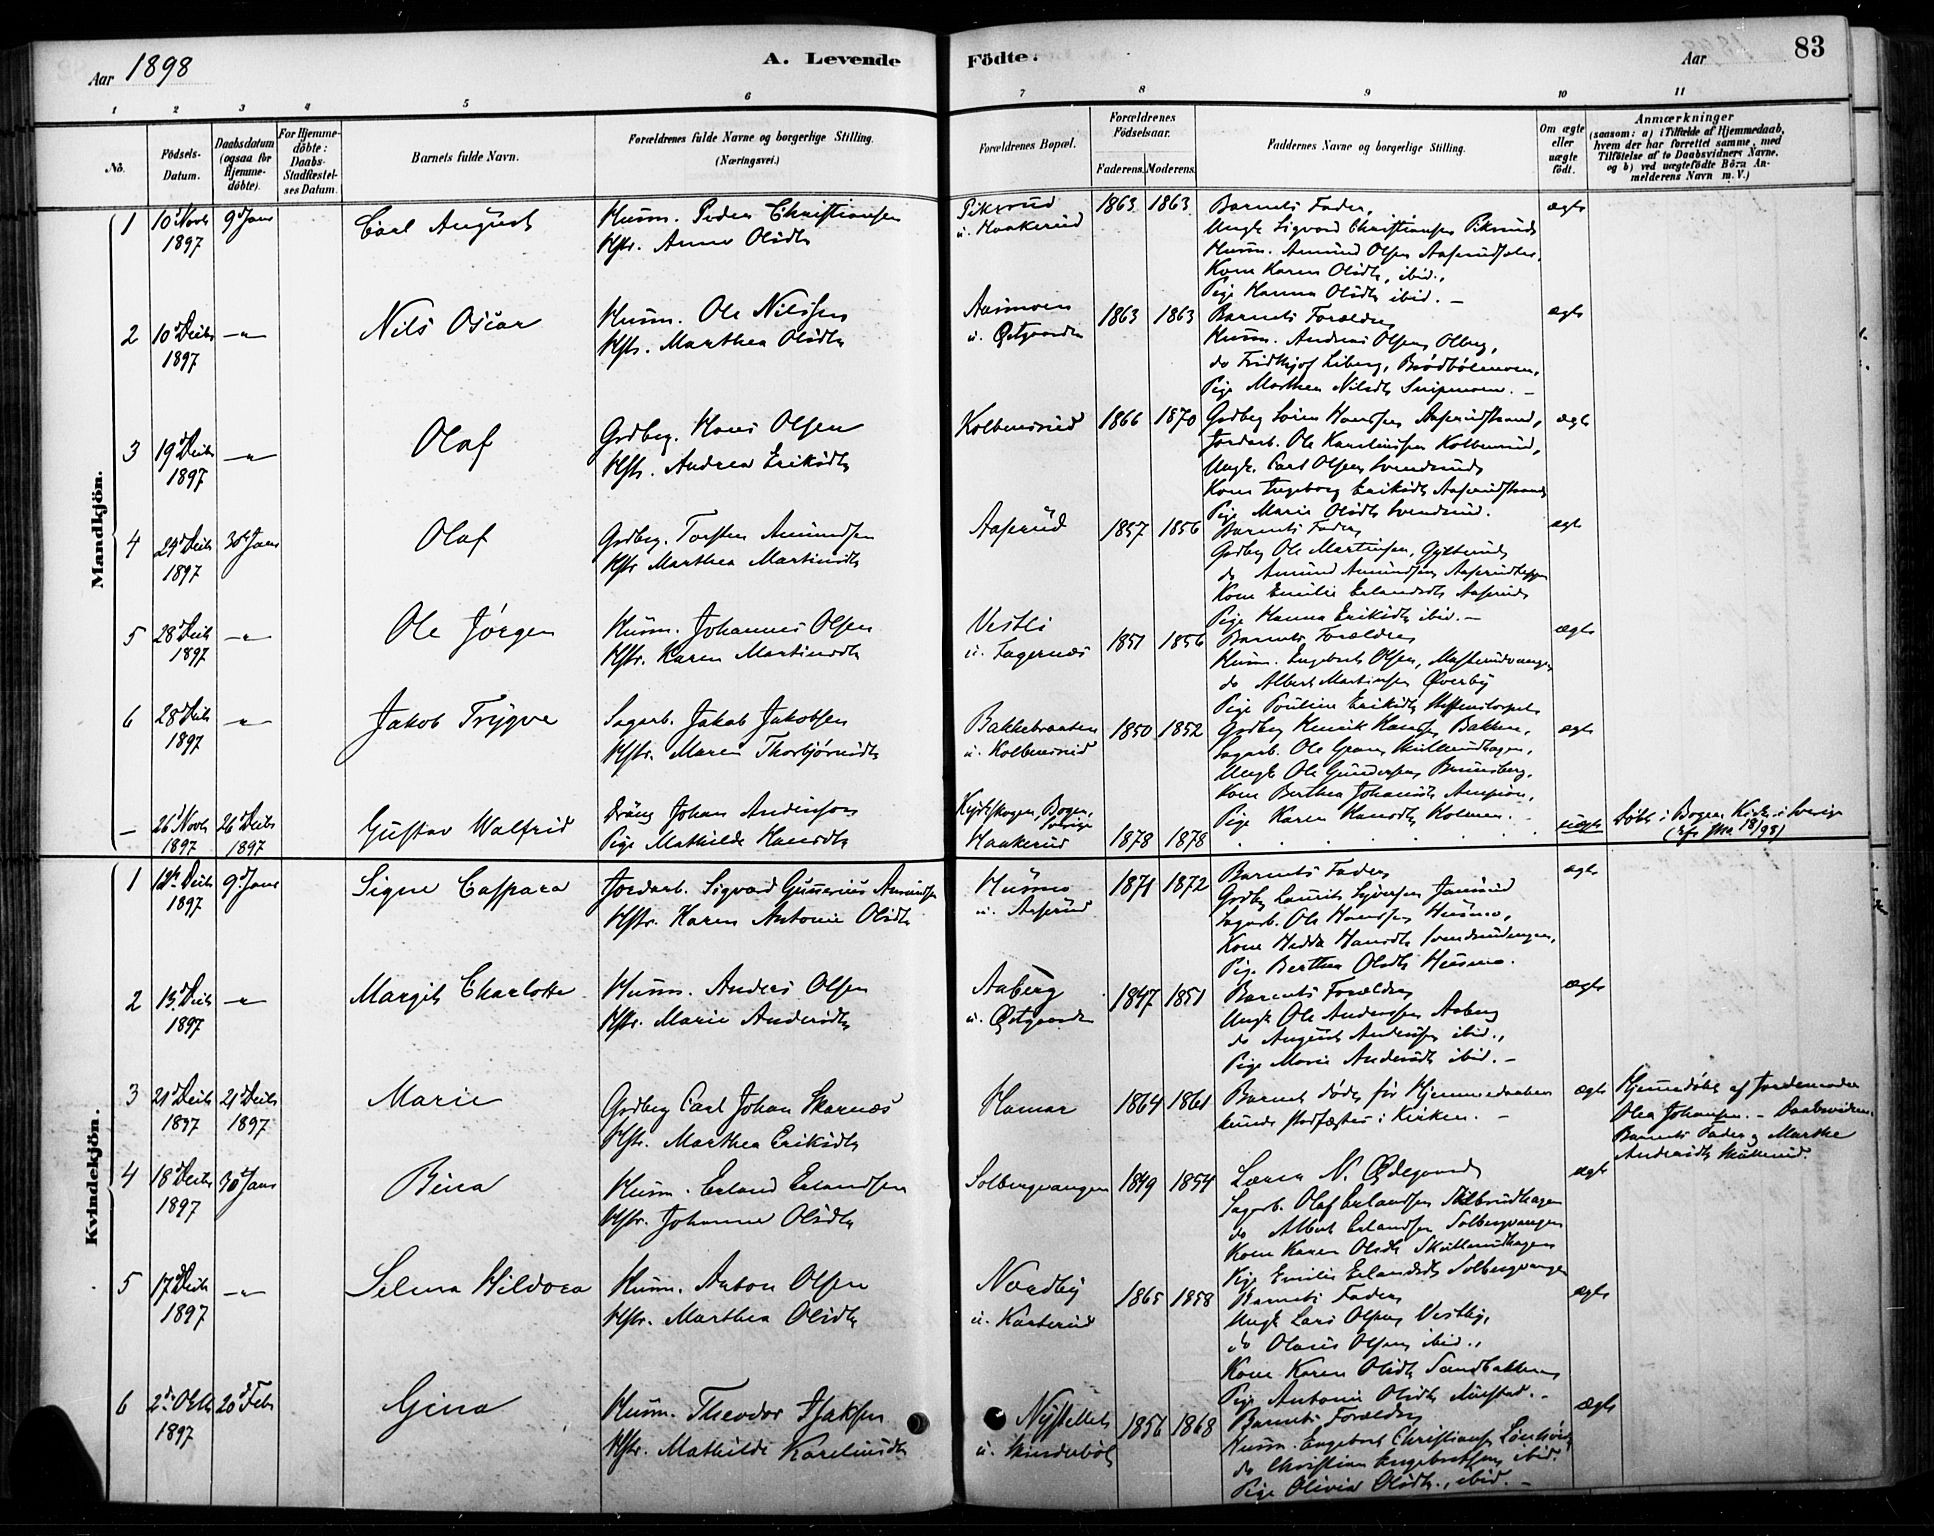 Aar 1898
A. Levende
Födte.
Aar
83
1 2 3 4 5 6 7 8 9 10 11
No.
Födsels-Datum.
Daabsdatum (ogsaa for Hjemmedöbte).
For Hjemmedöbte: Daabs-Stadfæstelses Datum.
Barnets fulde Navn.
Forældrenes fulde Navne og borgerlige Stilling. (Næringsvei.)
Forældrenes Bopæl.
Forældrenes Födselsaar.
Faderens. Moderens.
Faddernes Navne og borgerlige Stilling.
Om ægte eller uægte födt.
Anmærkninger
(saasom: a) i Tilfælde af Hjemmedaab, hvem der har forrettet samme, med Tilföielse af to Daabsvidners Navne, og b) ved uægtefödte Börn Anmelderens Navn m. V.)
Mandkjön.
1 10d Novb 1897 9d Jan Carl August
Husm. Peder Christiansen
Hstr. Anne Olsdtr
Piksrud u. Haakerud 1863 1863
Barnets Fader,
Ungk Sigvard Christiansen Piksrud
Husm. Amund Olsen
Kone Karen Olsdtr, ibid.,
Pige Hanna Olsdtr ibid. —
ægte
2 10d Decbr 1897 —"— Nils Oscar
Husm. Ole Nilssen
Hstr. Marthea Olsdtr
Aasmoen 1863 1863
Barnets Forældre
Husm. Andreas Olsen Olberg,
do Fridthjof Liberg,
Pige Marthea Nilsdtr
ægte
3 19d Decbr 1897 —"— Olaf
Grdbrg. Hans Olsen
Hstr. Andrea Eriksdtr
Kolbensrud 1866 1870
Grdbrg Søren Hanssen Aaserudstrand,
Jordarb. Ole Karelinssen Kolbensrud,
Ungk. Carl Olsen Svendsrud
Kone Ingeborg Eriksdtr Aaserudstrand
Pige Marie Olsdtr Svendsrud.
ægte
4 29d Decbr 1897 30d Jan Olaf
Grdbrg. Torsten Amundsen
Hstr Marthea Martinsdtr
Aaserud 1857 1856
Barnets Fader
Grdbrg Ole Martinsen,
do Amund Amundsen
Kone Emilie Erlandsdtr Aaserud
Pige Hanna Eriksdtr ibid. —
ægte
5 28d Decbr 1897 —"— Ole Jörgen
Husm. Johannes Olsen
Hstr. Karen Martinsdtr
Vestli u. Fagernæs 1851 1856
Barnets Forældre
Husm. Engebret Olsen,
do Albert Martinsen Øverby
Pige Pauline Eriksdtr
ægte
6 28d Decbr 1897 —"— Jakob Trygve
Sagarb. Jakob Jakobsen
Hstr. Maren Thorbjørnsdtr
Bakkebraaten u. Kolbensrud 1850 1852
Grdbrg Henrik Hansen Bakken,
Sagarb. Ole
Ungk Ole Gundersen Brunsberg,
Kone Berthea Johansdtr
Pige Karen Hansdtr Holmen. —
ægte
— 26d Novb 1897 26d Decbr 1897 Gustav Walfrid
Dräng Johan Andersson
Pige Mathilde Hansdtr
Bogen, Sverige
Haakerud 1878 1878
uægte
Døbt i Bogen Kirke i Sverige
18/98)
Kvindekjön.
1 12te Decbr 1897 9d Jan Signe Caspara
Jordarb. Sigvard Gunerius Amundsen
Hstr. Karen Antonie Olsdtr
Husmo u. Aaserud 1871 1872
Barnets Fader
Grdbrg Laurits Syversen
Sagarb. Ole Hanssen Husmo,
Kone Hedda Hansdtr
Pige Berthea Olsdtr Husmo.
ægte
2 15d Decbr 1897 —"— Margit Charlotte
Husm. Anders Olsen
Hstr. Marie Andersdtr
Aaberg 1847 1851
Barnets Forældre
Ungk Ole Andersen Aaberg
do August Andersen ibid.,
Pige Marie Andersdtr ibid. —
ægte
3 21d Decbr 1897 21d Decbr 1897 Marie
Grdbrg Carl Johan Skarnæs
Hstr. Marthea Eriksdtr
Hamar 1864 1861
Barnet døde før Hjemmedaaben
kunde stadfæstes i Kirken. —
ægte
Hjemmedøbt af Jordemoder
Olea Johansen. — Daabsvidner:
Barnets Fader og Marthe
Andersdtr
4 18d Decbr 1897 30d Jan Bina
Husm. Erland Erlandsen
Hstr. Johanne Olsdtr
Solbergvangen 1849 1854
Lærer N. Ødegaard
Sagarb. Olaf Erlandsen
do Albert Erlandsen Solbergvangen
Kone Karen Olsdtr
Pige Emilie Erlandsdtr Solbergvangen
ægte
5 17d Decbr 1897 —"— Selma Hildora
Husm. Anton Olsen
Hstr. Marthea Olsdtr
Nordby u. Kasterud 1865 1858
Barnets Fader
Ungk Lars Olsen Vestby,
do Olaus Olsen ibid.,
Kone Karen Olsdtr Sandbakken
Pige Antonie Olsdtr
ægte
6 2den Oktbr 1897 20d Febr Gina
Husm. Theodor Isaksen
Hstr. Mathilde Karelinsdtr
1856 1868
Barnets Forældre
Husm. Engebret Christiansen
do Christian Engebretsen ibid.
Pige Olivia Olsdtr., ibid. —
ægte